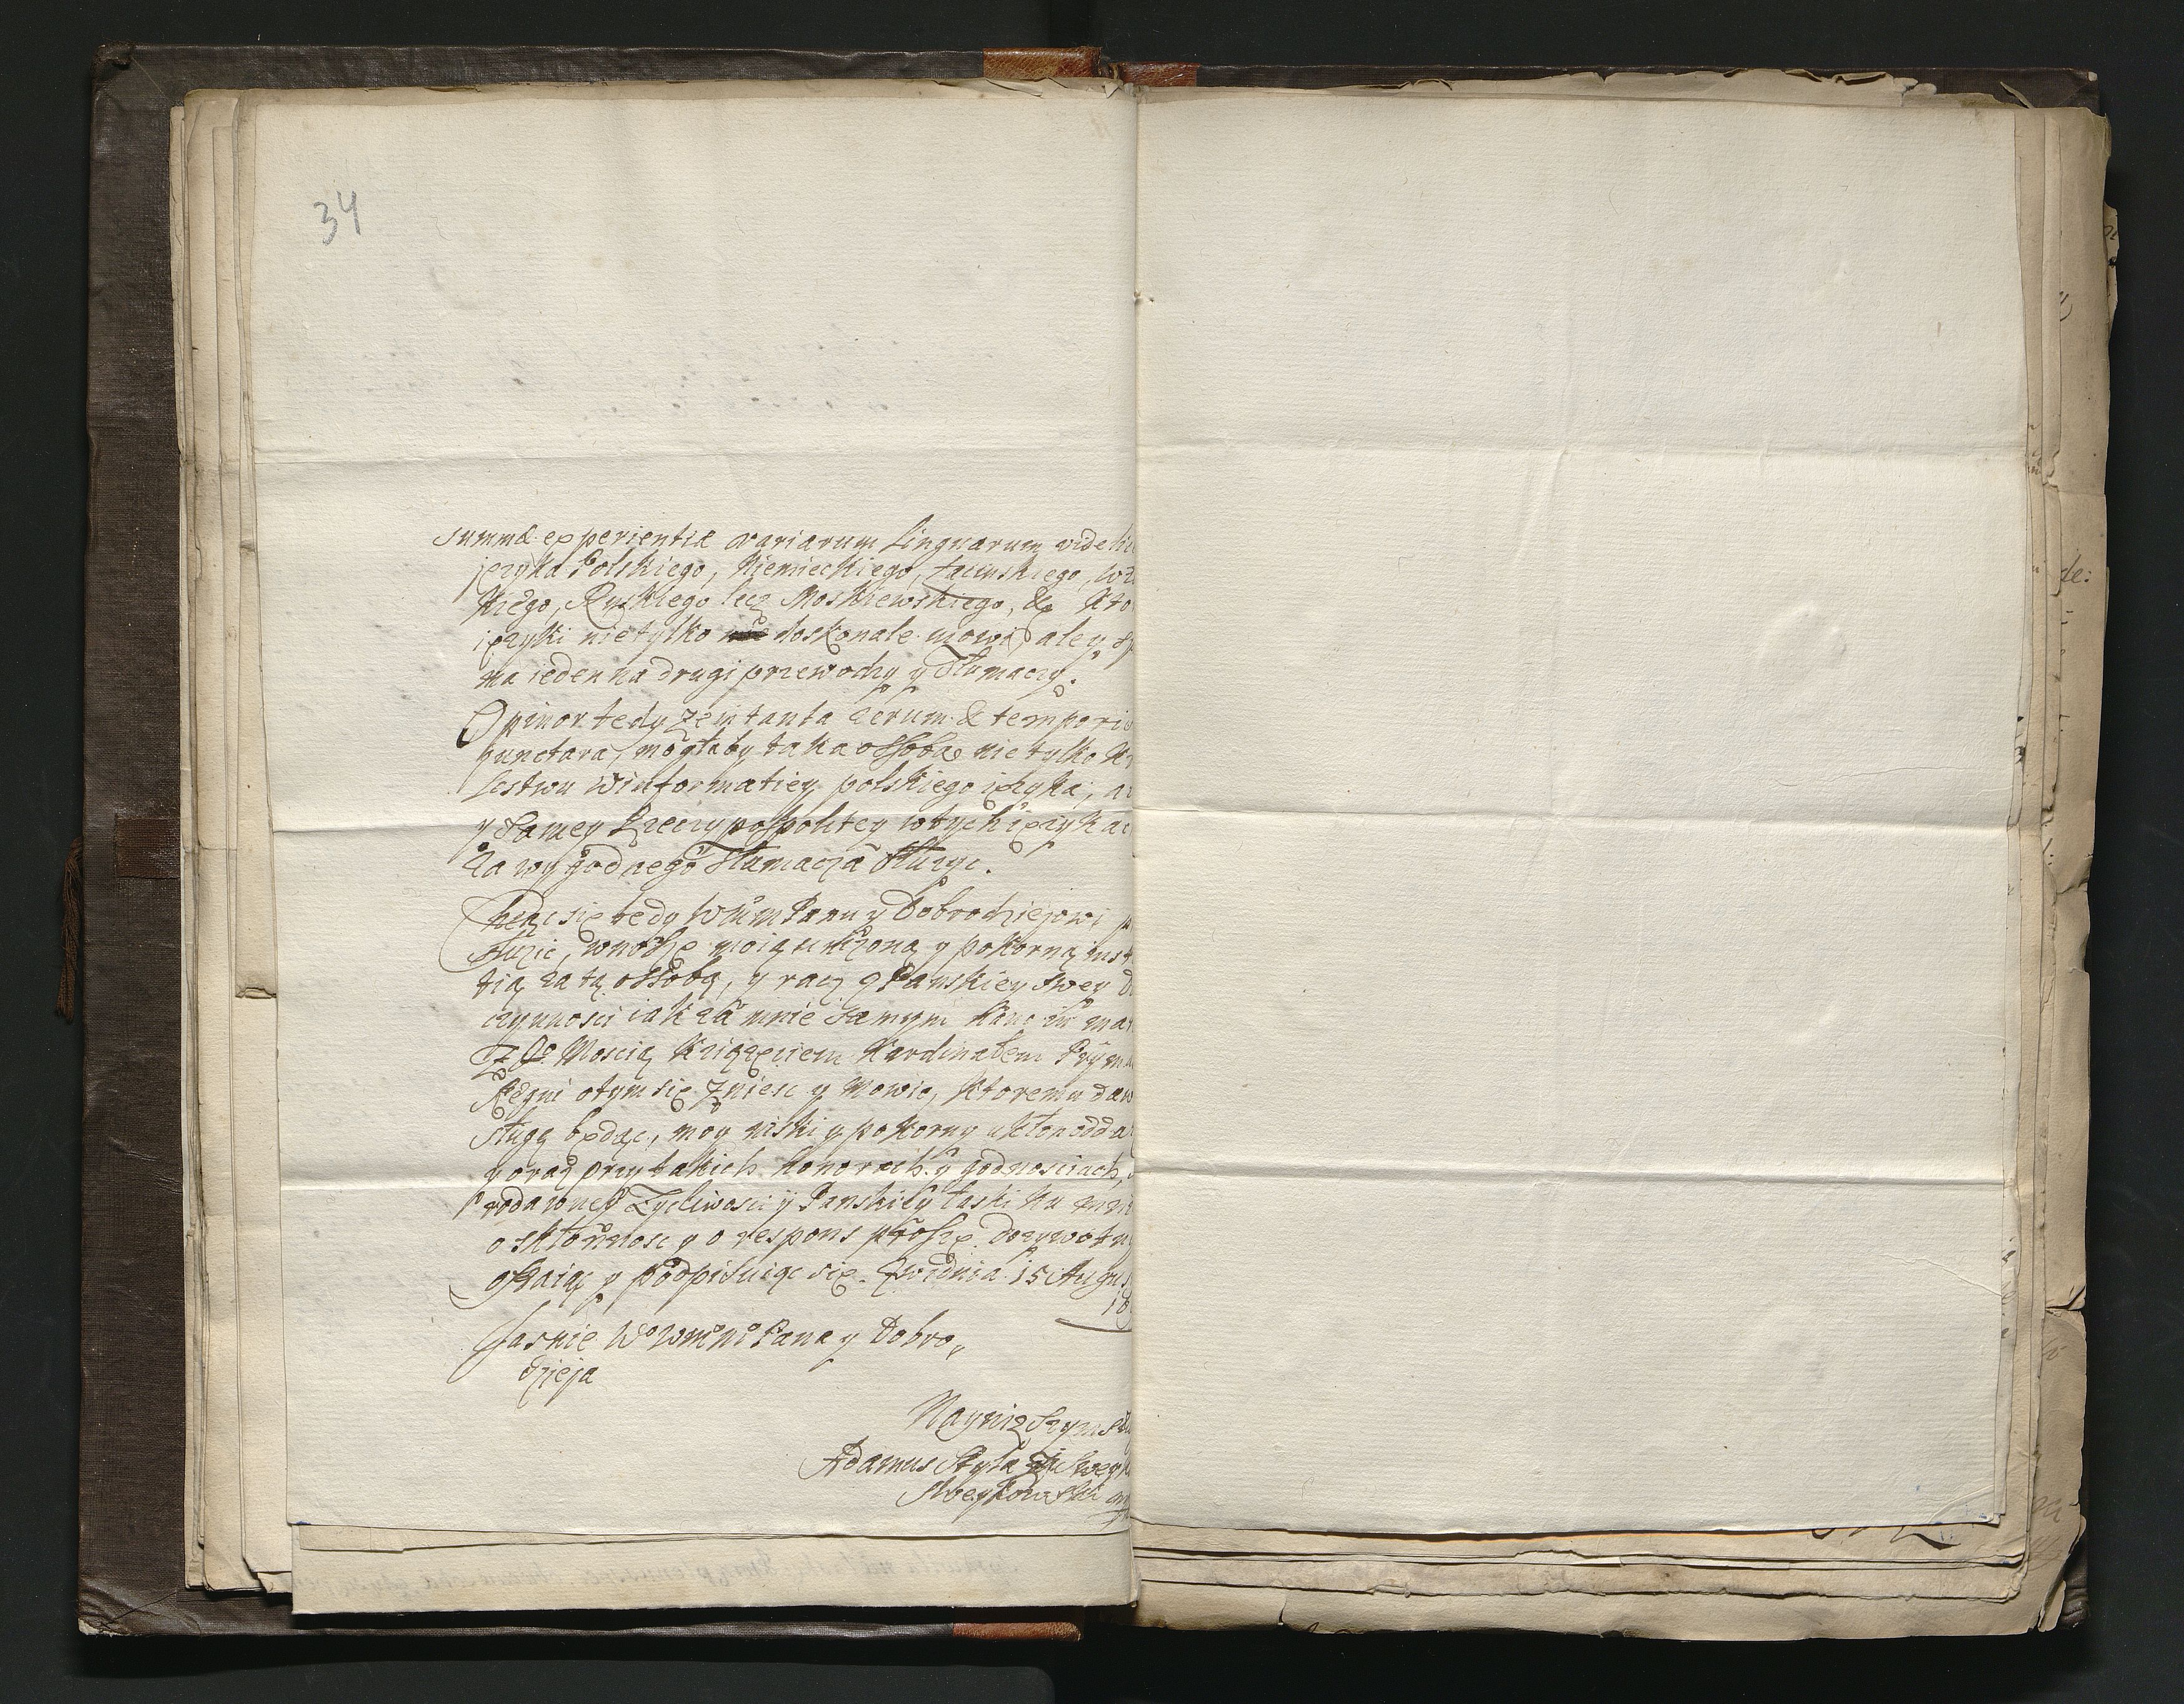 34
summæ experientiæ variarum linguarum videlic
języka Polskiego, Niemieckiego, Łacinskiego, Wł
kiego, Ruskiego lecz Moskiewskiego, & Kto
ięzyki nietylko doskonale mowi, ale y
ma ieden na drugi przewodzy y Tłumaczy.
Opinor tedy że in tanta rerum & temporis
punctura, mogłaby taka ossoba nie tylko Kr
lestwu w informatiey polskiego ięzyka, a
y samey Rzeczypospolitey w tych ięzykac
za wygodnego Tłumacza służyc.
Chcąc się tedy Wmm Panu y Dobrodziejowi p
służic, wnoszę moią uniżoną y pokorną inst
tią za tą ossobą, y racz z Panskiey swey D
czynnosci iak za mnie samym hanc in ma
Z Jo Moscią Xsiążęciem Kardinałem Pryma
Regni otym się zniesc y mowic, ktoremu daw
sługą będąc, moy niski y pokorny ukłon odda
y oraz przy takich honorach y godnosciach,
rodawney Zycliwosci y Panskiey łaski ku mni
o skłonnosc y o respons proszę dozywotn
ostaiąc y podpisuiąc się. Z Widnia 15 Augus
16
Jasnie Wo Wmm Pana y Dobro
dzieja
Nayniższym słu
Adamus Styla